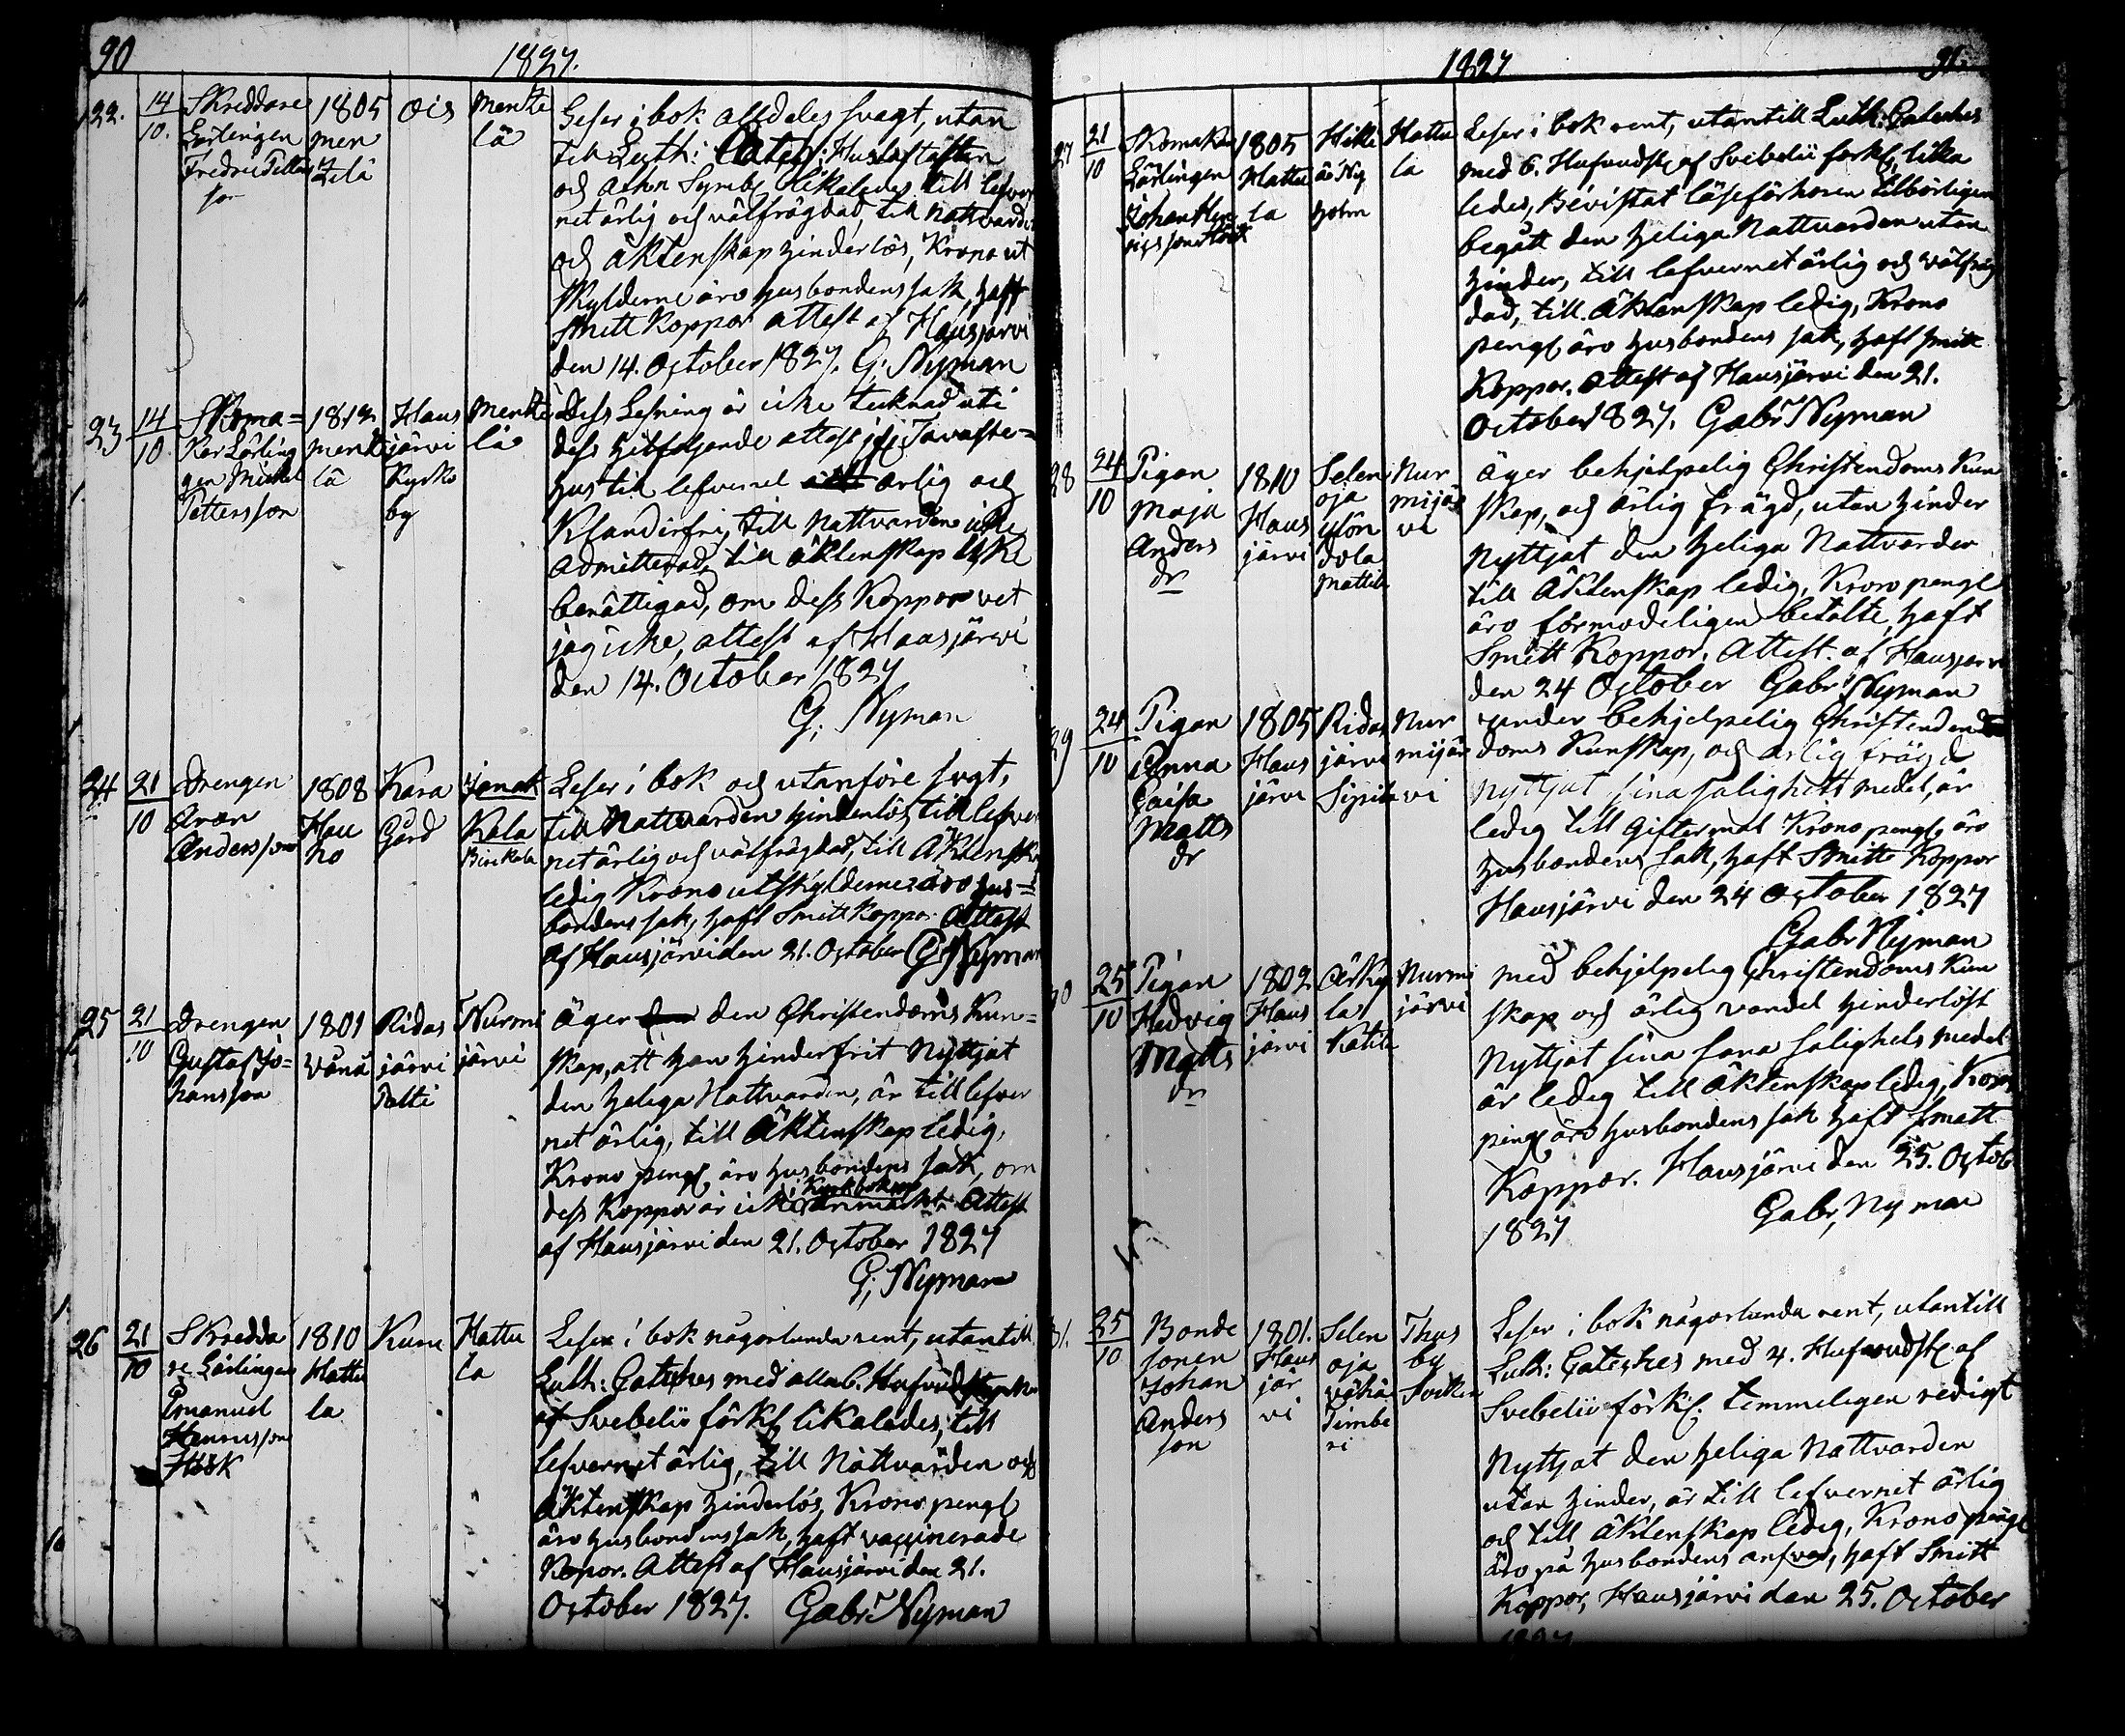 90
1827.
122.
14
10.
Skreddare
Lärlingen
Fredric Petters
son
1805
men
zelä
Ois
Mentze
lä
Leser i bok alldeles svagt, utan
till Luth: Catech: Hustaflästen
och Athn Symb likaledes till lefver
net ärlig och välfrägdad, till Nattvarden
och äktenskap hinderlös, Krono ut
skylderne äro husbondens sak, haft
Smitt Koppor attest af Hausjärvi
den 14. October 1827. G; Nyman
23
14
10
Skoma=
kar Lärling
gen Mickel
Pettersson
1812
lä
Haus
järvi
Kyrko
by
Mentze
lä
Dess Lesning är icke teknad uti
dess hitfoljande attest ifrj Tavaste=
hus till lefvernet ärlig och
Klanderfri, till Nattvarden icke
admitterad, till äktenskap icke
berättigad, om dess Koppor vet
jag icke, attest af Hausjärvi
den 14. October 1827
G; Nyman
24
21
10
Drengen
Aron
Andersson
1808
Hau
ho
Kara
Gård
Janak
Kala
Leser i bok och utanföre svgt,
till Nattvarden hinderlös till lefver
net ärlig och välfrägdad, till Äktensk
ledig Krono utskylderne äro hus=
bondens sak, haft Smitt Koppor. Attest
af Hausjärvi den 21. October G; Nyman
25
21
10
Drengen
Gustaf Jo=
hansson
1801
Vånå
Ridas
järvi
Palti
Nurmi
järvi
äger den Christendoms Kun=
skap, att han hinderfrit Nyttjat
den heliga Nattvarden, är till lefver
net ärlig, till Äktenskap ledig,
Krono peng äro husbondens sak, om
dess Koppor är icke i Kyrkboken anmärkt. Attest
af Hausjärvi den 21. October 1827
G; Nyman
26
21
10
Skredda
re Lärlingen
Emanuel
Henricsson
Höök
1810
Hattu
la
Kuru
Hattu
la
Leser i bok någorlunda rent, utantill
Luth: Gateches med alla 6. Hufvudstycken
af Svebelii förkl likaledes, till
lefvernet ärlig, till Nattvarden och
Äktenskap hinderlös, Krono peng
äro husbondens sak, haft vaccinerade
Kopor. Attest af Hausjärvi den 21.
October 1827. Gabr Nyman
1827
91.
27
21
10
Skomakar
Lärlingen
Johan Hen
1805
Hattu
la
Hikki
ä Ny
holm
Hattu
la
Leser i bok rent, utantill Luth: Gateches
med 6. Hufvudst af Svebelii forkl lika
ledes, Bivistat läseförhoren tillbörligen
begått den heliga Nattvarden utan
hinder, till lefvernet ärlig och välfräg
dad, till Äktenskap ledig, Krono
peng äro husbondens sak, haft smitt
Koppor. attest af Hausjärvi den 21.
October 1827. Gabr Nyman
28
24
10
Pigan
Maja
Anders
dr
1810
Haus
järvi
Selen
oja
ylön
dola
Mattila
Nur
mijär
vi
äger behjelpelig Christendoms Kun
skap, och ärlig frägd, utan hinder
Nyttjat den heliga Nattvarden
till Äktenskap ledig, Krono peng
äro förmodeligen betalte, haft
Smitt Koppor. Attest af Hausjarvi
den 24 October Gabr Nyman
29
24
10
Pigan
Anna
Caisa
Matts
dr
1805
Haus
järvi
Ridas
järvi
Sipilä
Nur
mijär
vi
under behjelpelig Christenden
doms Kunskap, och ärlig frägd
nyttjat sina salighett medel, är
ledig till Giftermal Krono peng äro
husbondens sak, haft Smitt Koppor
Hausjärvi den 24 October 1827
Gabr Nyman
30
25
10
Pigan
Hedvig
Matts
dr
1802
Haus
järvi
Ärky
lä
Katila
Nurmi
järvi
med behjelpelig Christendoms Kun
skap och ärlig vandel hinderlöst
Nyttjat sina sana salighets medel
är ledig till Äktenskap ledig, Kron
peng äro husbondens sak haft smått
Koppor. Hausjärvi den 25. Octob
1827 Gabr, Nyman
31.
25
10
Bonde
sonen
Johan
Anders
son
1801.
Haus
jär
vi
Selen
oja
vähä
Timbe
ri
Thus
by
Leser i bok någorlunda rent, utantill
Luth: Gateches med 4. Hufvudst af
Svebelii förkl. temmeligen redigt
Nyttjat den heliga Nattvarden
utan hinder, är till lefvernet ärlig
och till äktenskap ledig, Krono peng
äro på husbondens ansvar, haft Smitt
Koppor, Hausjärvi den 25. October
1827